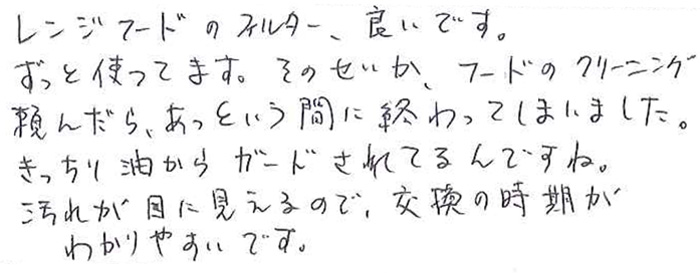 レンジフードのフィルター、良いです。
ずっと使ってます。そのせいか、フードのクリーニング
頼んだら、あっという間に終わってしまいました。
きっちり油からガードされてるんですね。
汚れが目に見えるので、交換の時期が
わかりやすいです。